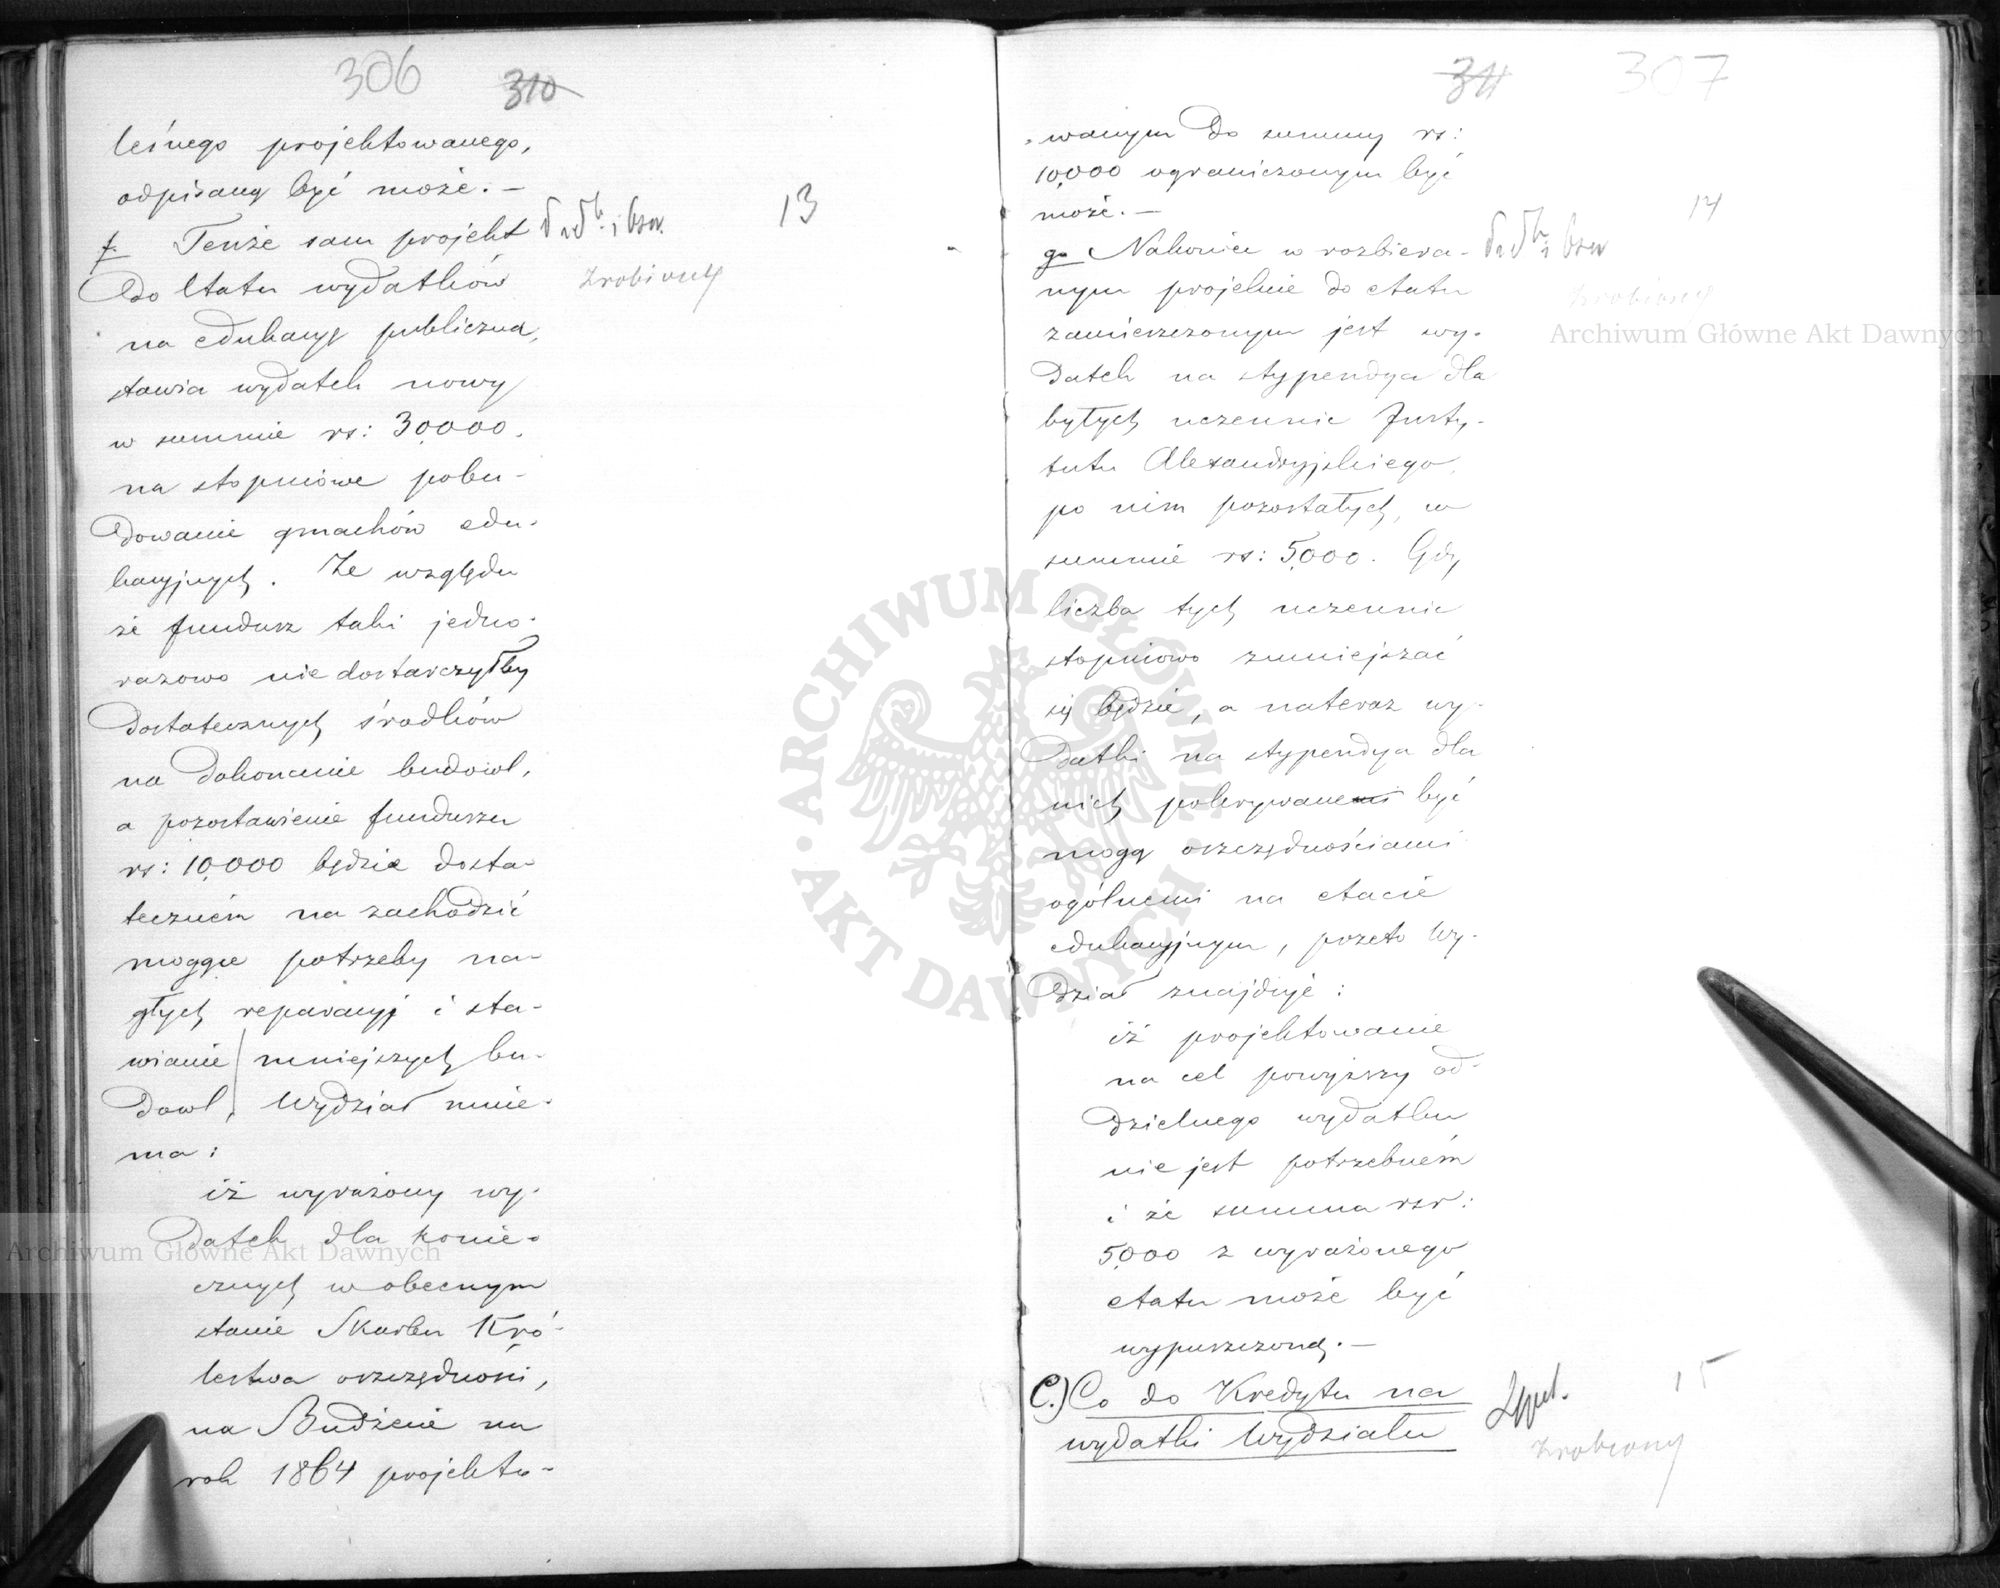 306 310
leśnego projektowanego,
odpisaną być może. —
f. Tenże sam projekt
do Etatu wydatków
na edukacyę publiczną,
stawia wydatek nowy
w summie rs: 30,000.
na stopniowe pobu-
dowanie gmachów edu-
kacyjnych. Ze względu
że fundusz taki jedno-
razowo nie dostarczyłby
dostatecznych środków
na dokonanie budowl,
a pozostawienie funduszu
rs: 10,000 będzie dosta-
teczném na zachodzić
mogące potrzeby na-
głych reparacyj i sta-
wianie mniejszych bu-
dowl, Wydział mnie-
ma:
iż wyrażony wy-
datek dla konie-
cznych w obecnym
stanie Skarbu Kró-
lestwa oszczędności,
na Budżecie na
rok 1864 projekto-
13
zrobiony
311 307
-wanym do summy rs:
10,000 ograniczonym być
może. —
g. Nakoniec w rozbiera-
nym projekcie do etatu
zamieszczonym jest wy-
datek na stypendya dla
byłych uczennic Insty-
tutu Alexandryjskiego,
po nim pozostałych, w
summie rs: 5,000. Gdy
liczba tych uczennic
stopniowo zmniejszać
się będzie, a nateraz wy-
datki na stypendya dla
nich pokrywane być
mogą oszczędnościami
ogólnemi na etacie
edukacyjnym, przeto Wy-
dział znajduje:
iż projektowanie
na cel powyższy od-
dzielnego wydatku
nie jest potrzebném
i że summa rsr:
5,000 z wyrażonego
etatu może być
wypuszczoną. —
C.) Co do Kredytu na
wydatki Wydziału
14
zrobiony
15
zrobiony
ARCHIWUM GŁÓWNE
AKT DAWNYCH
Archiwum Główne Akt Dawnych
Archiwum Główne Akt Dawnych